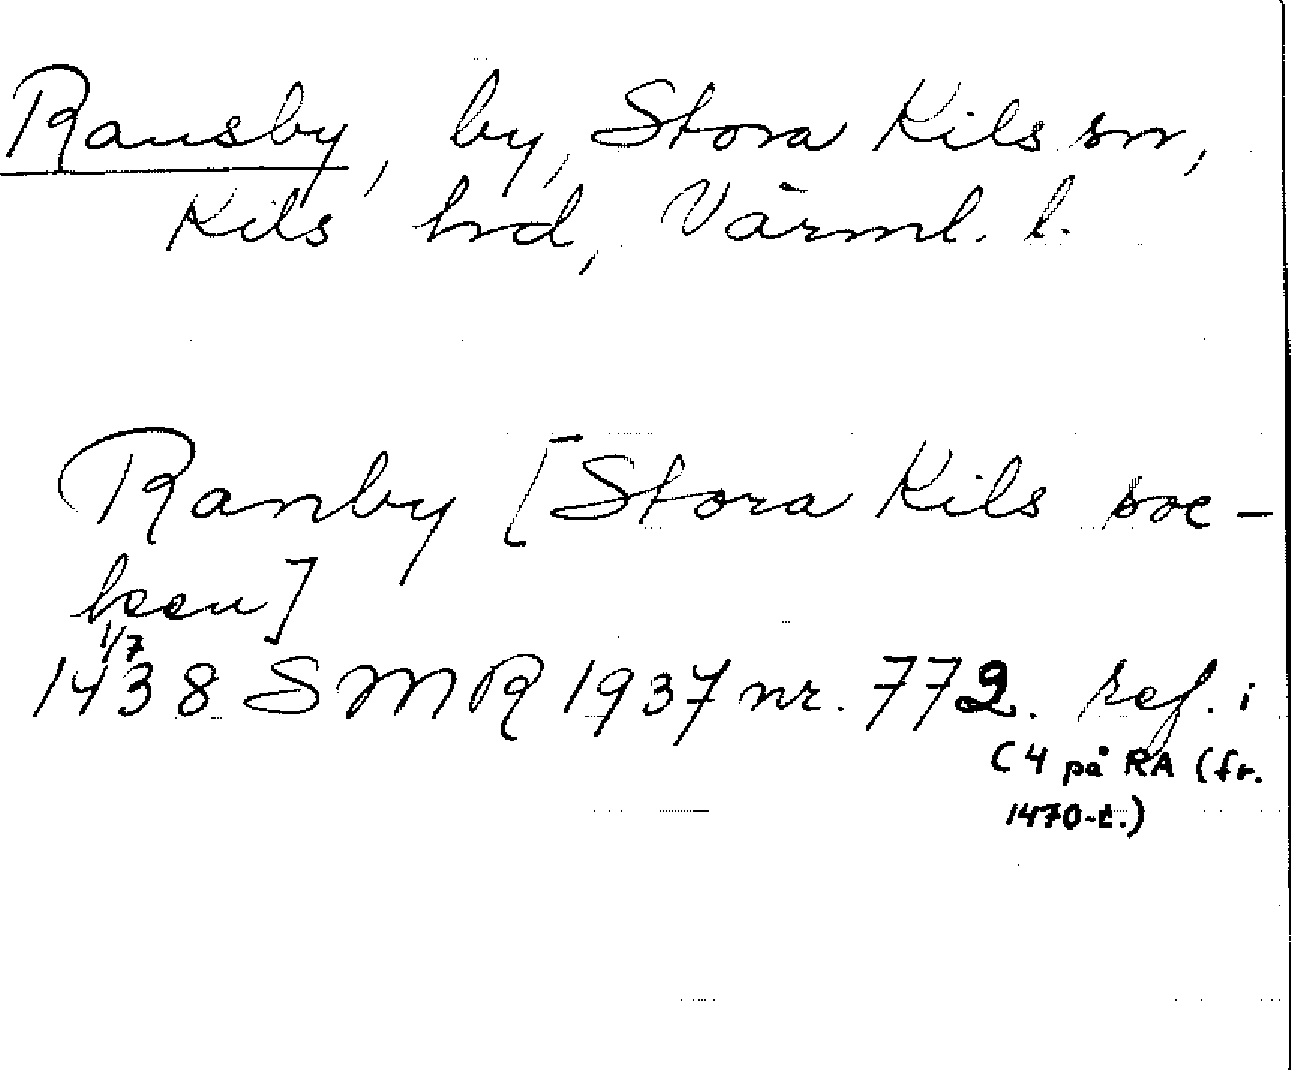 Ransby, by, Stora Kils sn,
Kils hd, Värml. l.
Ranby [Stora Kils soc-
ken]
1/7
1438 SMR 1937 nr. 772. ref. i
C 4 på RA (fr.
1470-t.)